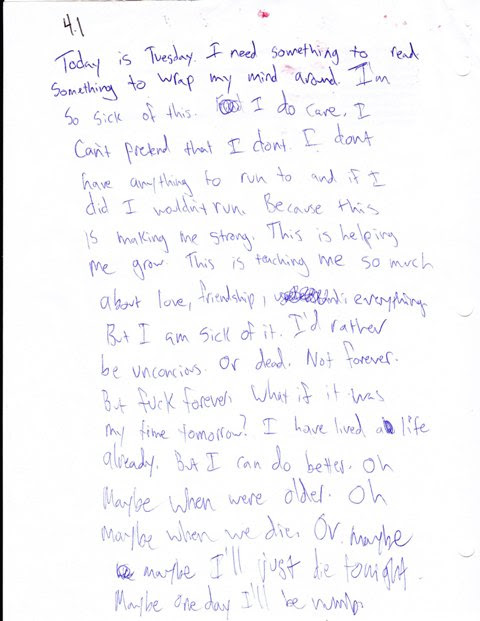 4.1
Today is Tuesday. I need something to read
something to wrap my mind around. I'm
so sick of this. I do care. I
Can't pretend that I dont. I dont
have anything to run to and if I
did I wouldn't run. Because this
is making me strong. This is helping
me grow. This is teaching me so much
about love, friendship, everything.
But I am sick of it. I'd rather
be unconcious. Or dead. Not forever.
But fuck forever. What if it was
my time tomorrow? I have lived a life
already. But I can do better. Oh
Maybe when were older. Oh
Maybe when we die. Or maybe
maybe I'll just die tonight.
Maybe one day I'll be numb.